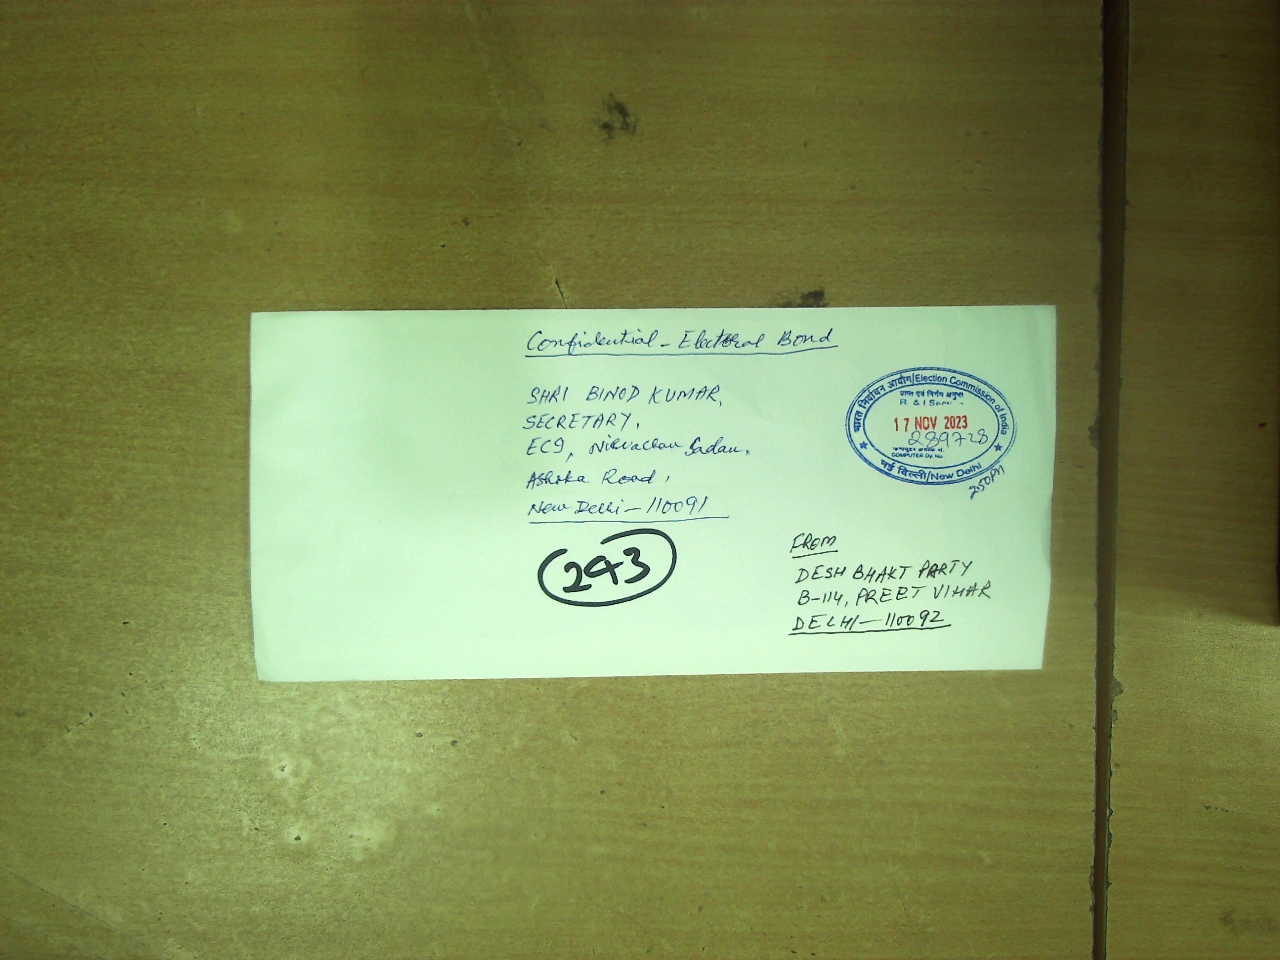 Confidential - Electoral Bond
SHRI BINOD KUMAR,
SECRETARY,
ECI, Nirvachan Sadan,
Ashoka Road,
New Delhi - 110091
243
भारत निर्वाचन आयोग/Election Commission of India
R & I
17 NOV 2023
289728
COMPUTER Dy. No.
नई दिल्ली/New Delhi
2:50 PM
FROM
DESH BHAKT PARTY
B-114, PREET VIHAR
DELHI - 110092